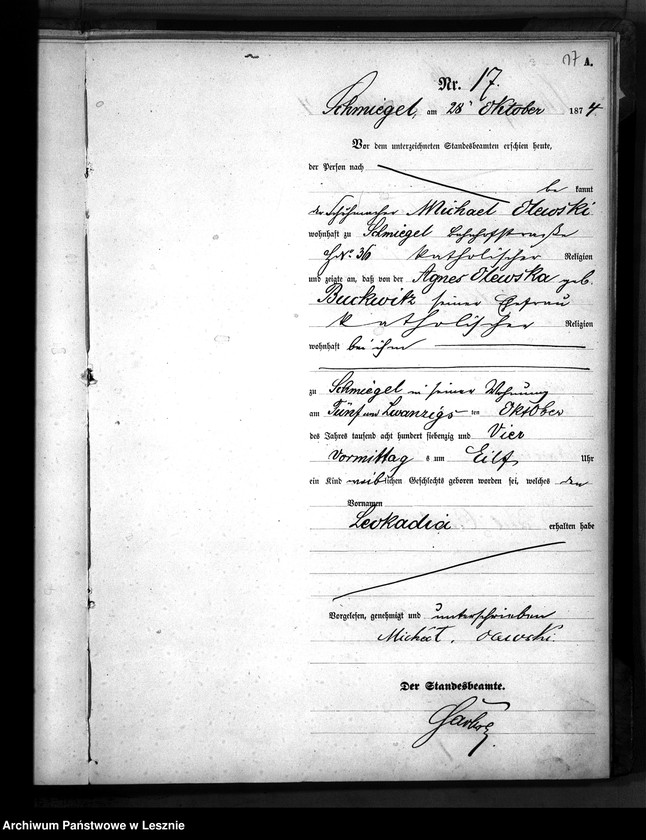 17 A.
Nr. 17.
Schmiegel, am 28ᵗ Oktober 1874
Vor dem unterzeichneten Standesbeamten erschien heute,
der Person nach
be kannt
der Schuhmacher Michael Olewski
wohnhaft zu Schmiegel Bahnhofstraße
No. 36 katholischer Religion
und zeigte an, daß von der Agnes Olewska geb.
Buckwitz seiner Ehefrau
katholischer Religion
wohnhaft bei ihm
zu Schmiegel in seiner Wohnung
am Fünf und Zwanzigs ten Oktober
des Jahres tausend acht hundert siebenzig und Vier
Vormittag s um Eilf Uhr
ein Kind weiblichen Geschlechts geboren worden sei, welches den
Vornamen
Leokadia erhalten habe
Vorgelesen, genehmigt und unterschrieben
Michał. Olewski.
Der Standesbeamte.
Archiwum Państwowe w Lesznie